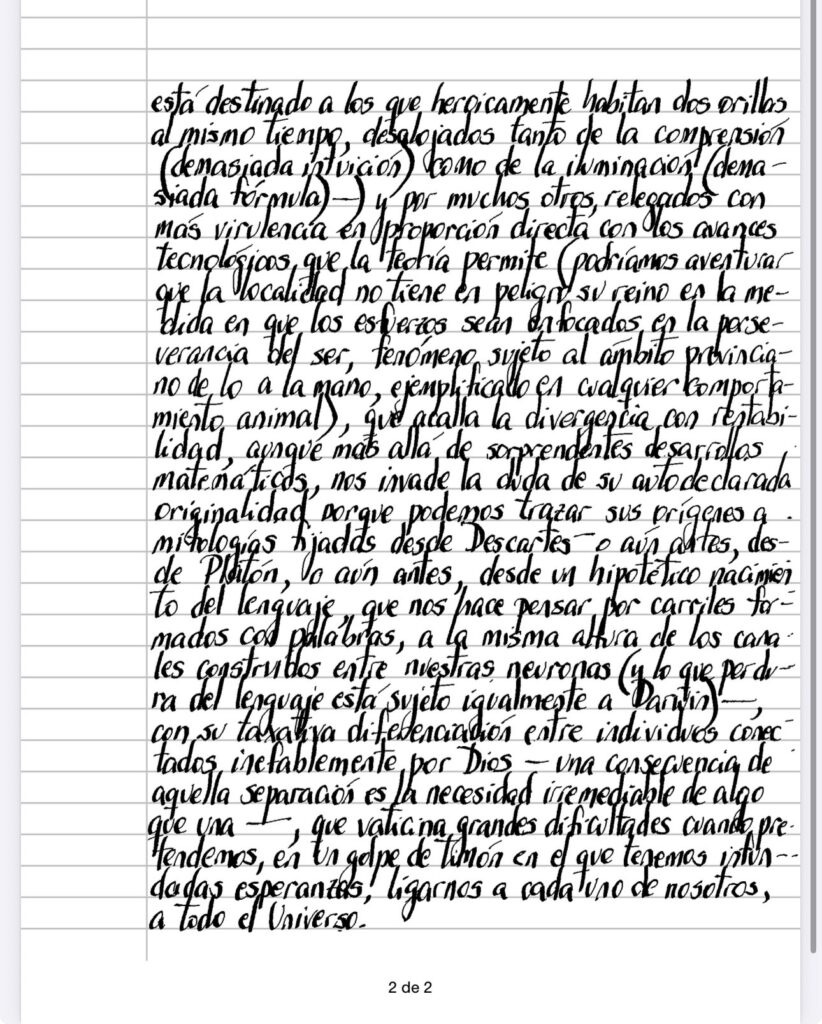 está destinado a los que heroicamente habitan dos orillas
al mismo tiempo, desalojados tanto de la comprensión
(demasiada intuición) como de la iluminación (dema-
siada fórmula)—) y por muchos otros, relegados con
más virulencia en proporción directa con los avances
tecnológicos, que la teoría permite (podríamos aventurar
que la localidad no tiene en peligro su reino en la me-
dida en que los esfuerzos sean enfocados en la perse-
verancia del ser, fenómeno sujeto al ámbito provincia-
no de lo a la mano, ejemplificado en cualquier comporta-
miento animal), que acalla la divergencia con rentabi-
lidad, aunque más allá de sorprendentes desarrollos
matemáticos, nos invade la duda de su autodeclarada
originalidad porque podemos trazar sus orígenes a
mitologías fijadas desde Descartes — o aún antes, des-
de Platón, o aún antes, desde un hipotético nacimien
to del lenguaje, que nos hace pensar por carriles for-
mados con palabras, a la misma altura de los cana-
les construidos entre nuestras neuronas (y lo que perdu-
ra del lenguaje está sujeto igualmente a Darwin)—,
con su taxativa diferenciación entre individuos conec-
tados inefablemente por Dios — una consecuencia de
aquella separación es la necesidad irremediable de algo
que una —, que vaticina grandes dificultades cuando pre-
tendemos, en un golpe de timón en el que tenemos infun-
dadas esperanzas, ligarnos a cada uno de nosotros,
a todo el Universo.
2 de 2